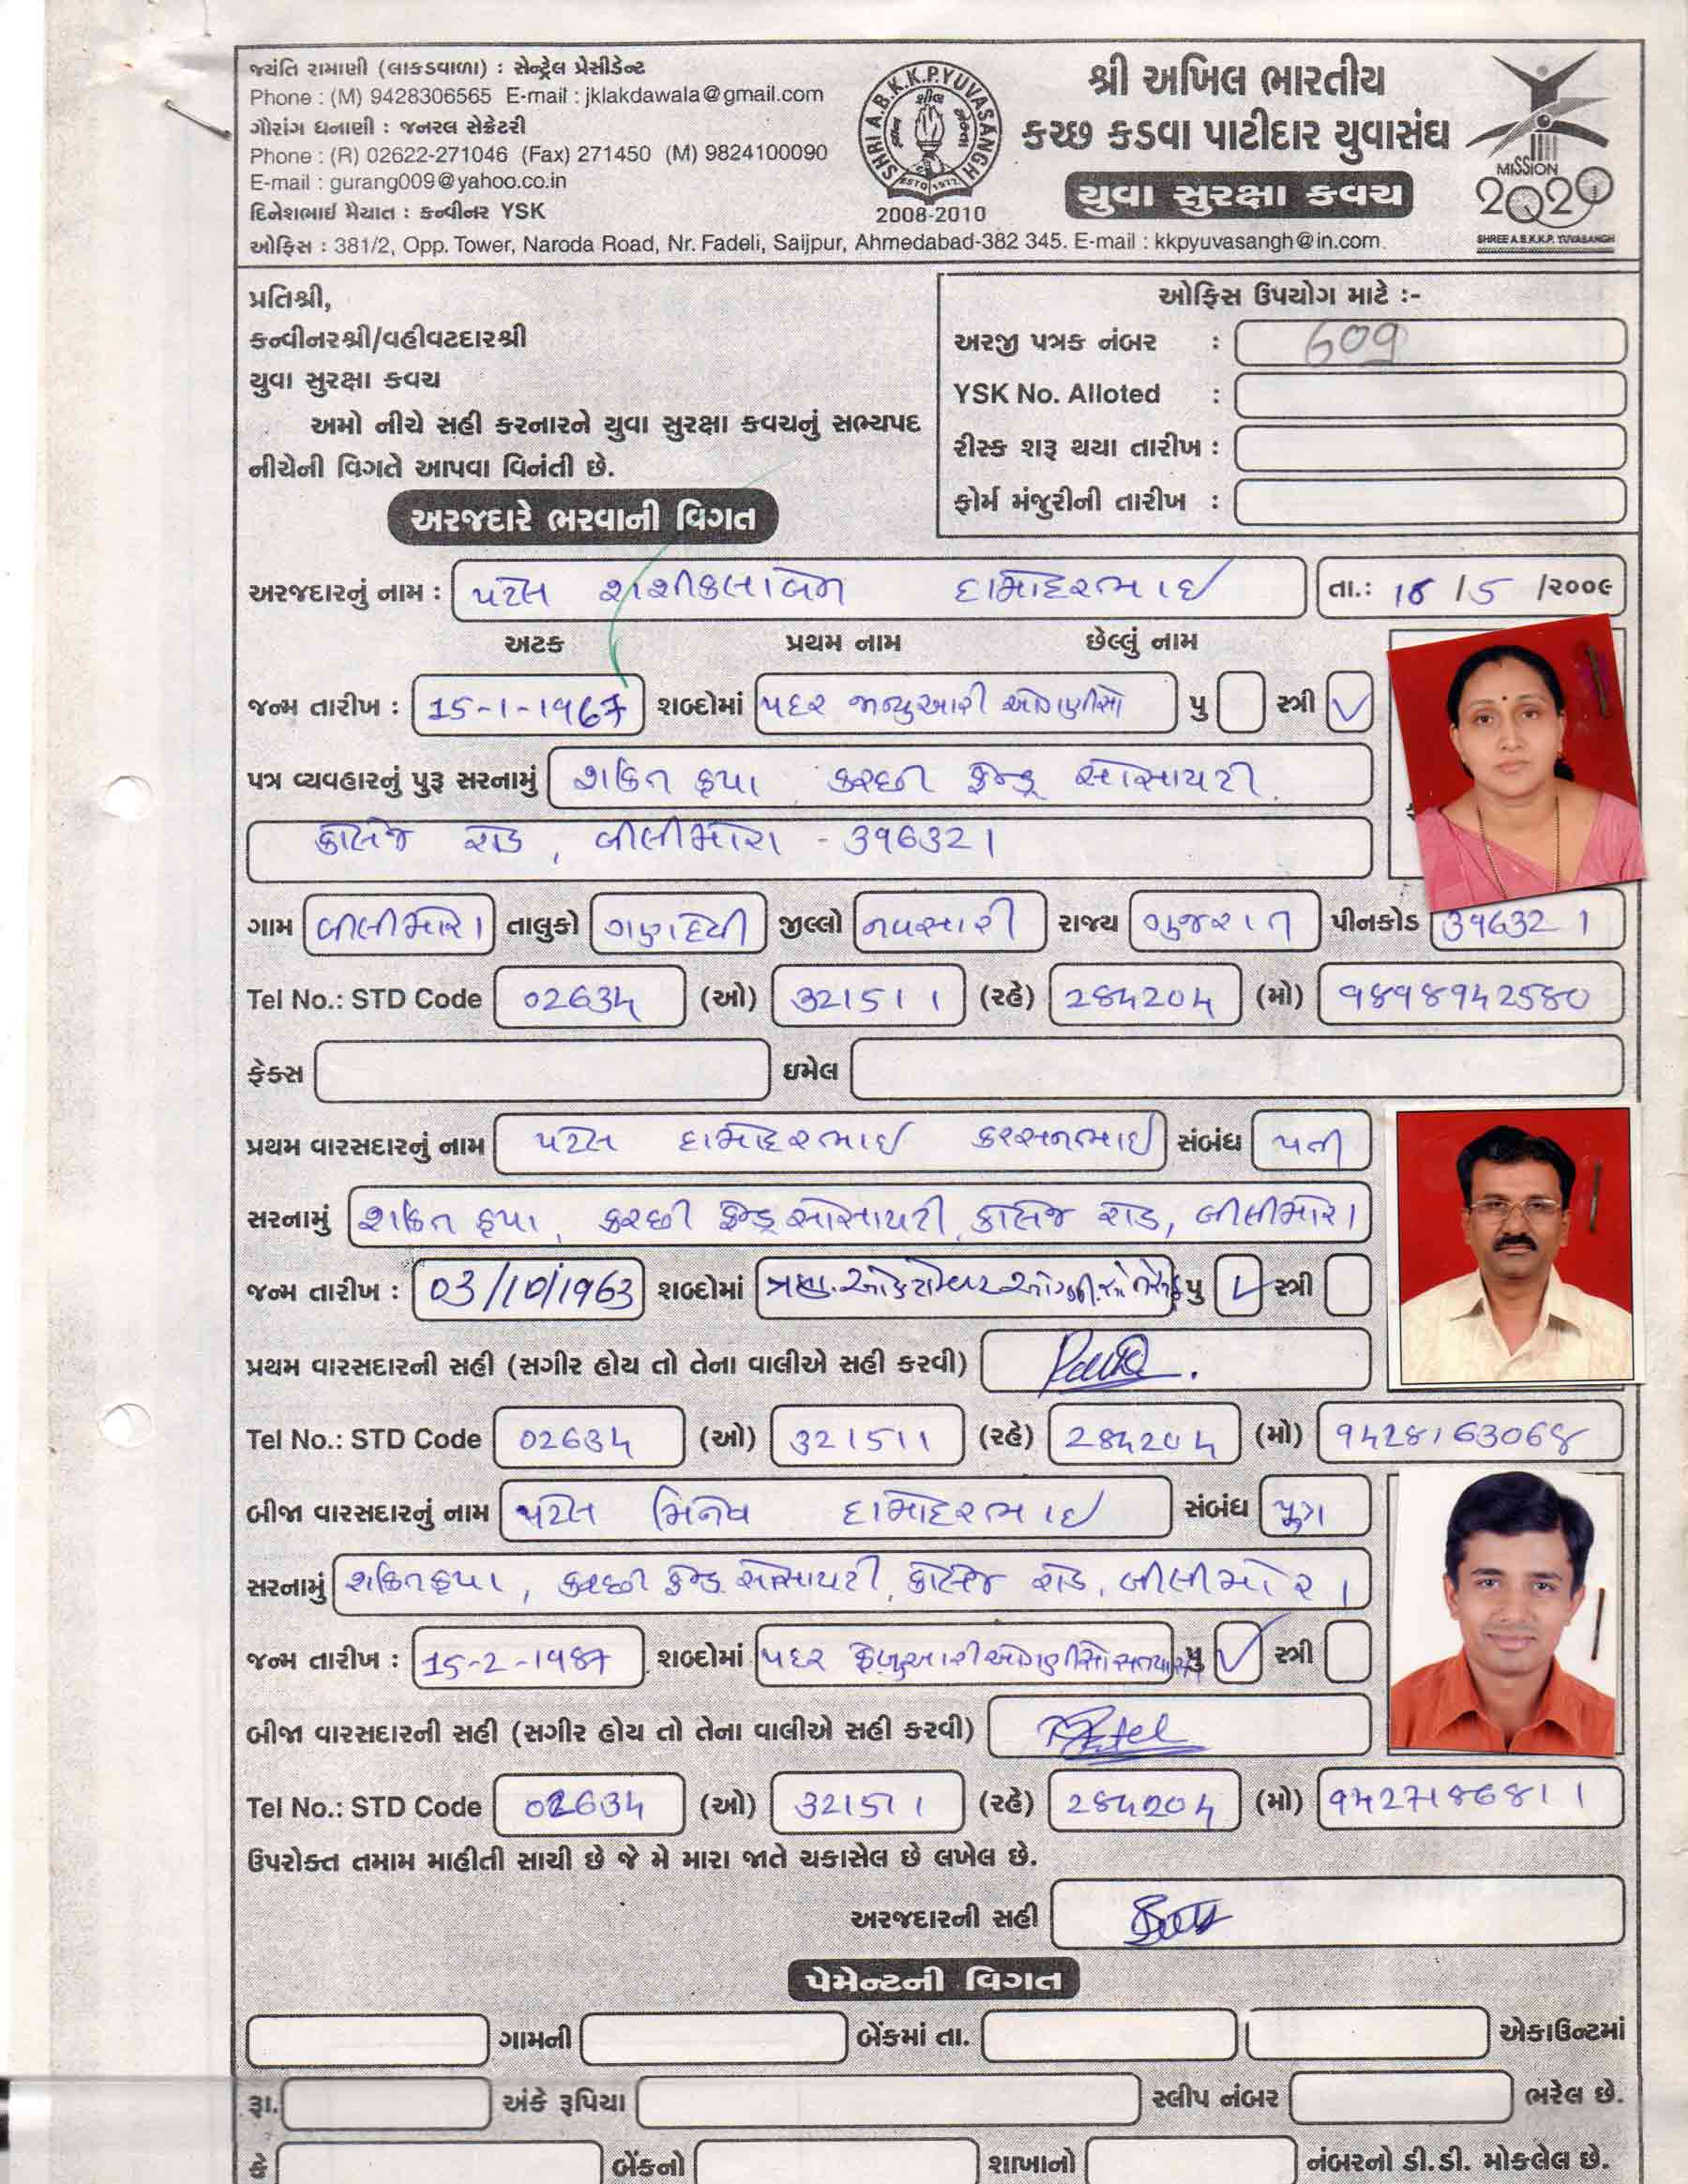 જયંતિ રામાણી (લાકડાવાળા) : સેન્ટ્રેલ પ્રેસીડેન્ટ
Phone : (M) 9428306565 E-mail : jklakdawala@gmail.com
ગૌરાંગ ધનાણી : જનરલ સેક્રેટરી
Phone : (R) 02622-271046 (Fax) 271450 (M) 9824100090
E-mail : gurang009@yahoo.co.in
દિનેશભાઈ મૈયાત : કન્વીનર YSK
ઓફિસ : 381/2, Opp. Tower, Naroda Road, Nr. Fadeli, Saijpur, Ahmedabad-382 345. E-mail : kkpyuvasangh@in.com.
SHRI A.B.K.K.P. YUVASANGH
ESTD 1977
2008-2010
શ્રી અખિલ ભારતીય
કચ્છ કડવા પાટીદાર યુવાસંઘ
યુવા સુરક્ષા કવચ
MISSION
2020
SHREE A.B.K.K.P. YUVASANGH
પ્રતિશ્રી,
કન્વીનરશ્રી/વહીવટદારશ્રી
યુવા સુરક્ષા કવચ
અમો નીચે સહી કરનારને યુવા સુરક્ષા કવચનું સભ્યપદ
નીચેની વિગતે આપવા વિનંતી છે.
ઓફિસ ઉપયોગ માટે :-
અરજી પત્રક નંબર : 609
YSK No. Alloted :
રીસ્ક શરૂ થયા તારીખ :
ફોર્મ મંજુરીની તારીખ :
અરજદારે ભરવાની વિગત
અરજદારનું નામ : પટેલ શશીકલાબેન દામોદરભાઇ તા.: 18 /5 /૨૦૦૯
અટક પ્રથમ નામ છેલ્લું નામ
જન્મ તારીખ : 15-1-1967 શબ્દોમાં પંદર જાન્યુઆરી ઓગણીસો પુ સ્ત્રી ✓
પત્ર વ્યવહારનું પુરૂ સરનામું શકિત કૃપા કચ્છી ફ્રેન્ડ્ર સોસાયટી
કોલેજ રોડ, બીલીમોરા - 396321
ગામ બીલીમોરા તાલુકો ગણદેવી જીલ્લો નવસારી રાજ્ય ગુજરાત પીનકોડ 396321
Tel No.: STD Code 02634 (ઓ) 321511 (રહે) 284204 (મો) 9898942580
ફેક્સ ઇમેલ
પ્રથમ વારસદારનું નામ પટેલ દામોદરભાઇ કરસનભાઇ સંબંધ પતી
સરનામું શકિત કૃપા, કચ્છી ફ્રેન્ડ્ર સોસાયટી, કોલેજ રોડ, બીલીમોરા
જન્મ તારીખ : 03/10/1963 શબ્દોમાં ત્રણ ઓકટોમ્બર પુ ✓ સ્ત્રી
પ્રથમ વારસદારની સહી (સગીર હોય તો તેના વાલીએ સહી કરવી)
Tel No.: STD Code 02634 (ઓ) 321511 (રહે) 284204 (મો) 9428163068
બીજા વારસદારનું નામ પટેલ દામોદરભાઇ સંબંધ પુત્ર
સરનામું શકિતકૃપા, કચ્છી ફ્રેન્ડ્ર સોસાયટી, કોલેજ રોડ, બીલીમોરા
જન્મ તારીખ : 15-2-1987 શબ્દોમાં પંદર ફેબ્રુઆરી ઓગણીસો પુ ✓ સ્ત્રી
બીજા વારસદારની સહી (સગીર હોય તો તેના વાલીએ સહી કરવી)
Tel No.: STD Code 02634 (ઓ) 321511 (રહે) 284204 (મો) 9427186811
ઉપરોક્ત તમામ માહીતી સાચી છે જે મે મારા જાતે ચકાસેલ છે લખેલ છે.
અરજદારની સહી
પેમેન્ટની વિગત
ગામની બેંકમાં તા. એકાઉન્ટમાં
રૂા. અંકે રૂપિયા સ્લીપ નંબર ભરેલ છે.
કે બેંકનો શાખાનો નંબરનો ડી.ડી. મોકલેલ છે.